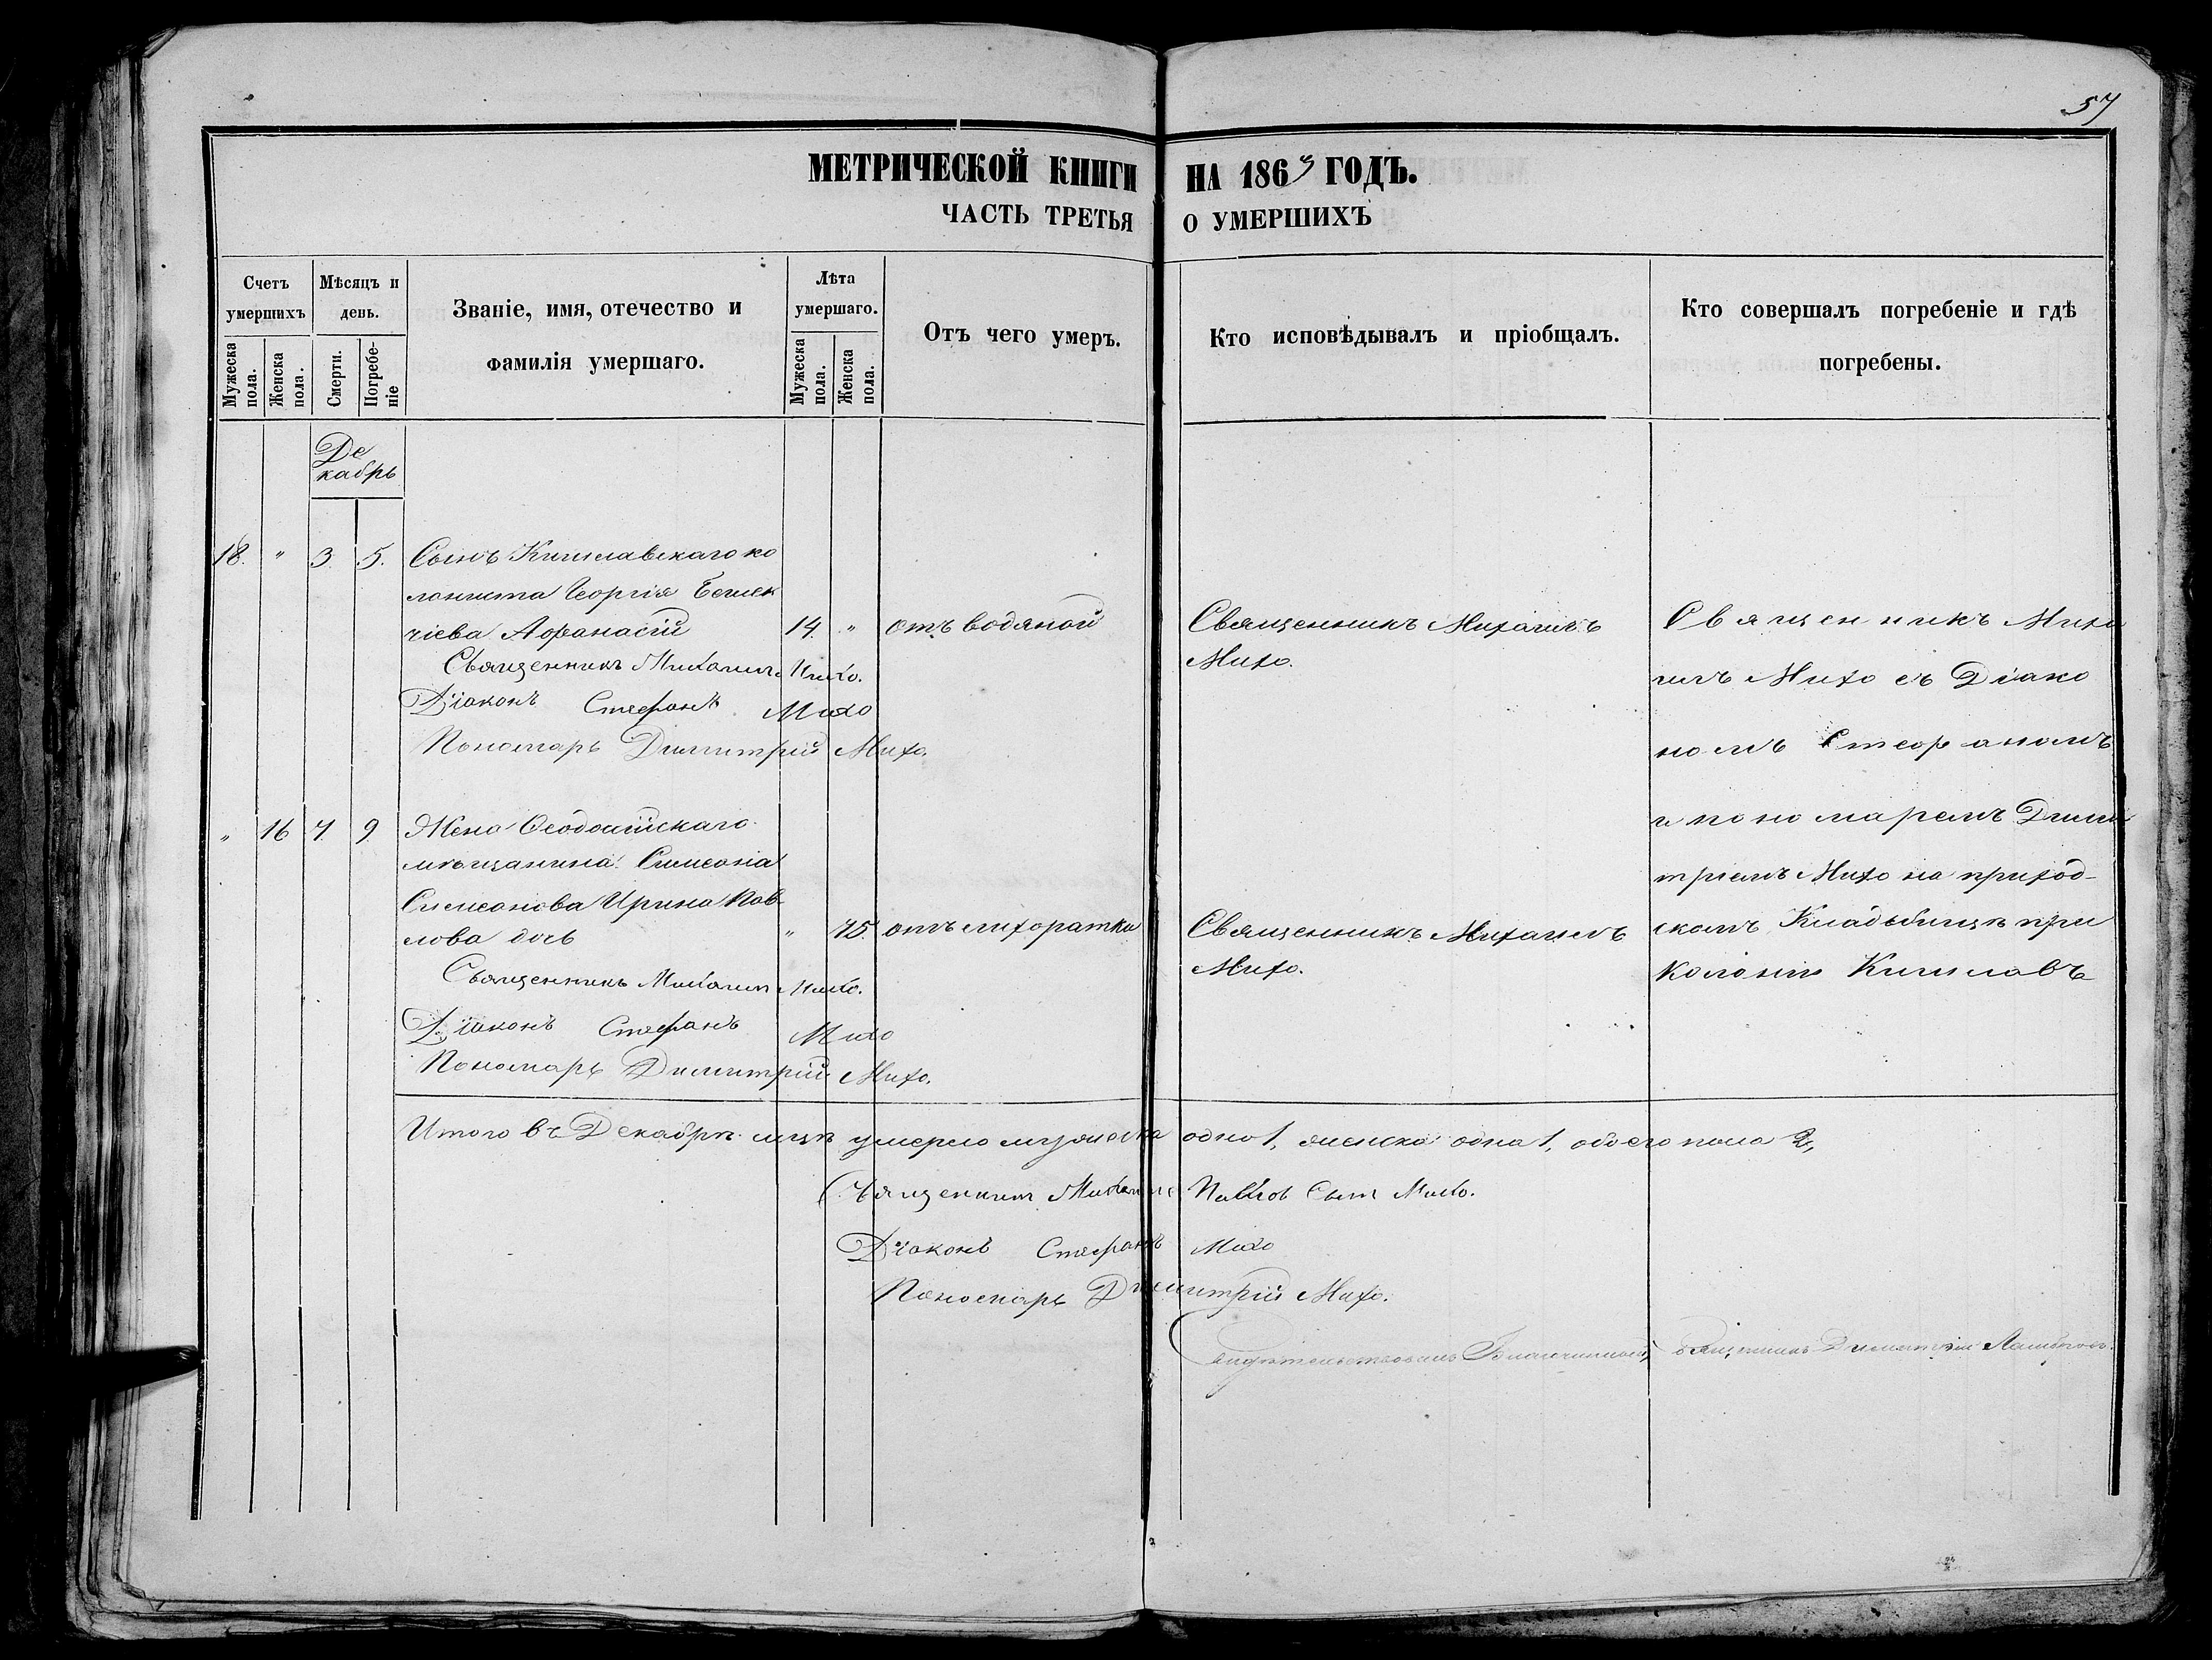 57
МЕТРИЧЕСКОЙ КНИГИ НА 1863 ГОДЪ.
ЧАСТЬ ТРЕТЬЯ О УМЕРШИХЪ
Счетъ умершихъ
Мужеска пола.
Женска пола.
Мѣсяцъ и день.
Смерти.
Погребе-ніе
Званіе, имя, отечество и
фамилія умершаго.
Лѣта умершаго.
Мужеска пола.
Женска пола.
Отъ чего умеръ.
Кто исповѣдывалъ и пріобщалъ.
Кто совершалъ погребеніе и гдѣ
погребены.
Де
кабрь
18. " 3. 5. Сынъ Кишлавскаго ко
лониста Георгія Бешек
чіева Афанасій 14. " отъ водяной
Священникъ Михаилъ Михо.
Діаконъ Стефанъ Михо
Пономарь Димитрій Михо.
Священникъ Михаилъ
Михо.
" 16 7. 9. Жена Ѳеодосійскаго
мѣщанина Симеона
Симеонова Ирина Пав
лова дочь " 75. отъ лихоратки
Священникъ Михаилъ Михо.
Діаконъ Стефанъ Михо
Пономарь Димитрій Михо.
Священникъ Михаилъ
Михо.
Священникъ Миха
илъ Михо съ Діако
номъ Стефаномъ
и пономаремъ Дими
тріемъ Михо на приход-
скомъ Кладбищѣ при
Колоніи Кишлавъ
Итого въ Декабрѣ мцѣ умерло мужеска одно 1, женска одна 1, обоего пола 2,
Священникъ Михаилъ Павловъ Сынъ Михо.
Діаконъ Стефанъ Михо
Пономарь Димитрій Михо.
Свидѣтельствовалъ Благочинный, Священникъ Димитрій